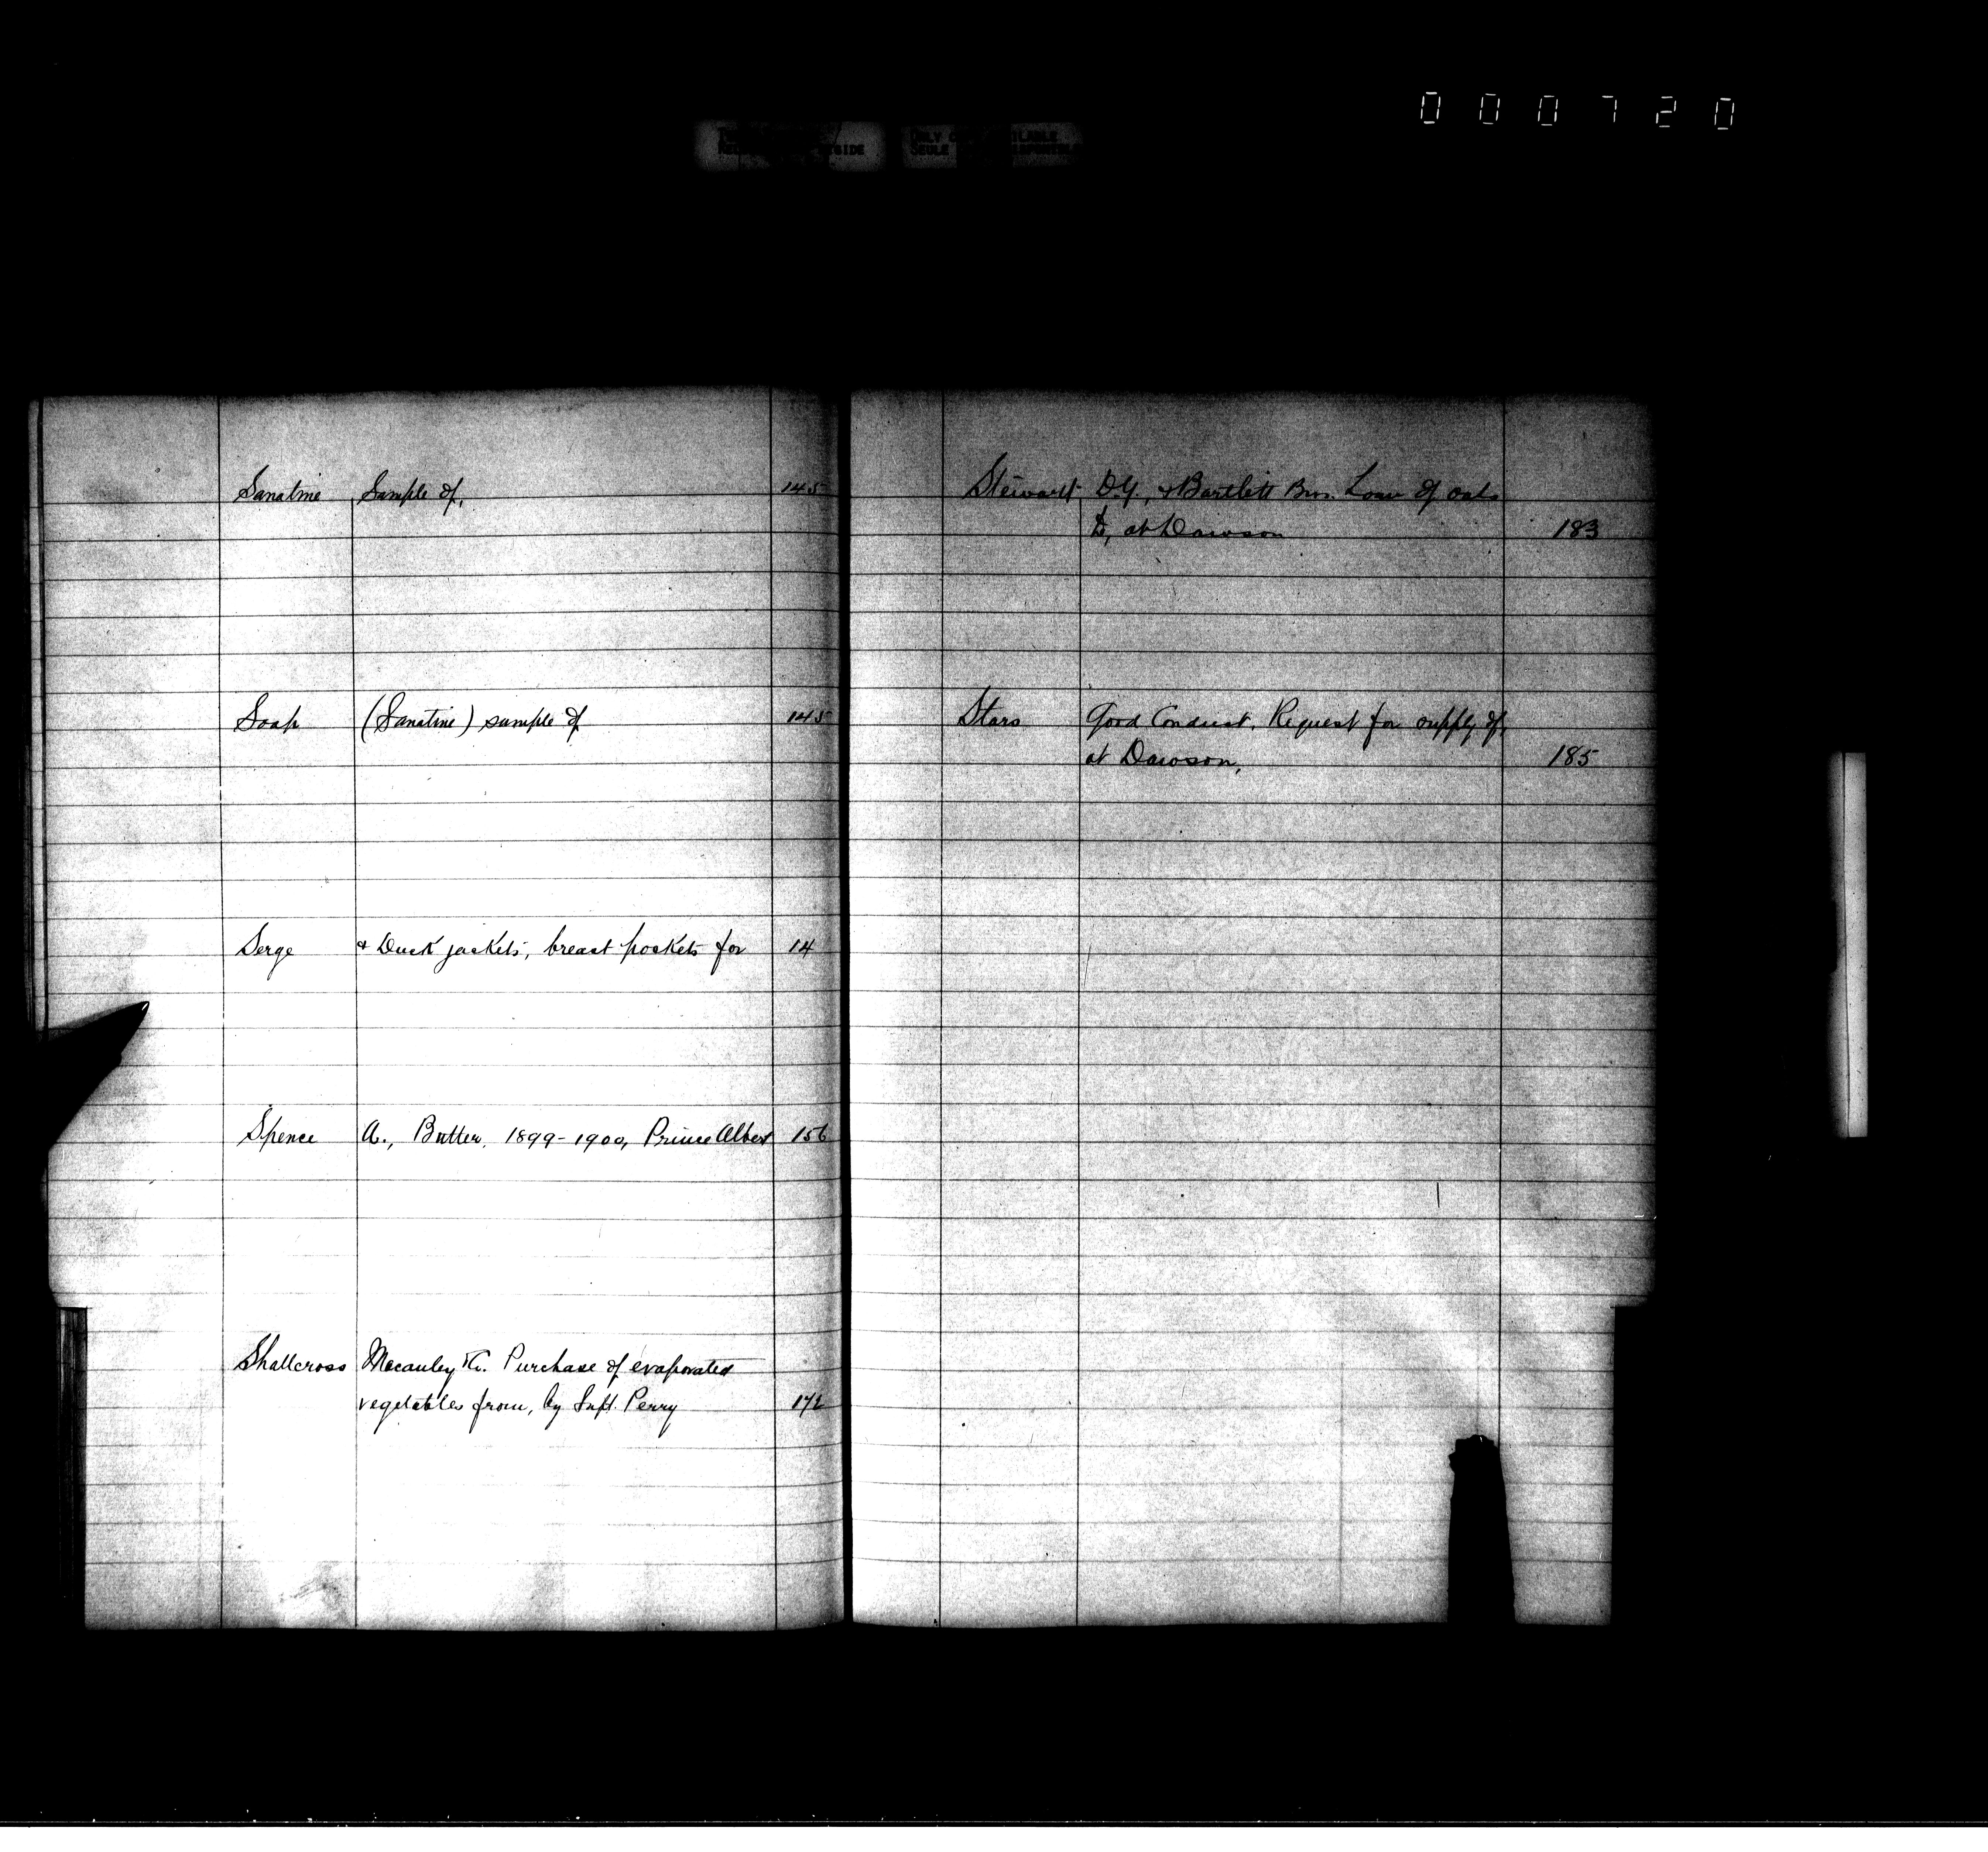 000720
SIDE
ONLY
SEULE
Sanatine Sample of, 145
Soap (Sanatine) sample of 145
Serge & Duck jackets, breast pockets for 14
Spence A., Butter, 1899-1900, Prince Albert 156
Shallcross Macauley &Co. Purchase of evaporated
vegetables from, by Supt. Perry 172
Stewart D.G., & Bartlett Bros. Loan of oats
to, at Dawson 183
Stars Good Conduct. Request for supply of,
at Dawson, 185